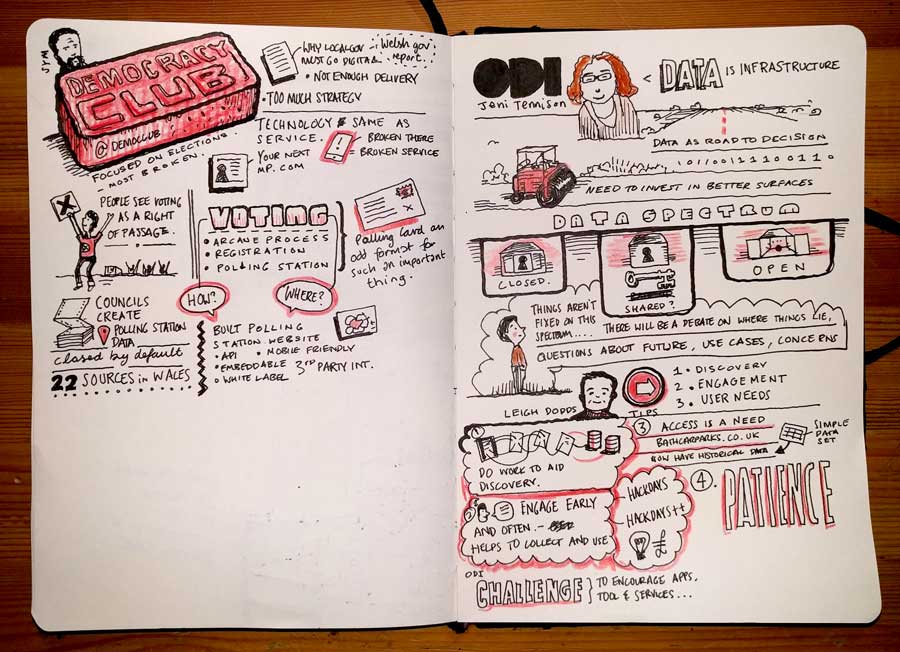 JYM
DEMOCRACY
CLUB
@DEMOCLUB
FOCUSED ON ELECTIONS.
- MOST BROKEN.
WHY LOCALGOV
MUST GO DIGITAL
Welsh gov
report.
• NOT ENOUGH DELIVERY
• TOO MUCH STRATEGY
TECHNOLOGY = SAME AS
SERVICE.
BROKEN THERE
= BROKEN SERVICE
YOUR NEXT
MP.COM
PEOPLE SEE VOTING
AS A RIGHT
OF PASSAGE.
VOTING
• ARCANE PROCESS
• REGISTRATION
• POLLING STATION
Polling Card an
odd format for
such an important
thing.
HOW?
WHERE?
COUNCILS
CREATE
POLLING STATION
DATA
closed by default
22 SOURCES in WALES
BUILT POLLING
STATION WEBSITE
• API • MOBILE FRIENDLY
• EMBEDDABLE 3RD PARTY INT.
• WHITE LABEL
ODI
Jeni Tennison
< DATA IS INFRASTRUCTURE
DATA AS ROAD TO DECISION
NEED TO INVEST IN BETTER SURFACES
DATA SPECTRUM
CLOSED.
SHARED?
OPEN
THINGS AREN'T
FIXED ON THIS
SPECTRUM....
THERE WILL BE A DEBATE ON WHERE THINGS LIE,
QUESTIONS ABOUT FUTURE, USE CASES, CONCERNS
LEIGH DODDS
TIPS
1. DISCOVERY
2. ENGAGEMENT
3. USER NEEDS
1
DO WORK TO AID
DISCOVERY.
2
ENGAGE EARLY
AND OFTEN. -
HELPS TO COLLECT AND USE
HACKDAYS
HACKDAYS++
£
3 ACCESS IS A NEED
BATHCARPARKS.CO.UK
NOW HAVE HISTORICAL DATA
SIMPLE
DATA
SET
4. PATIENCE
ODI
CHALLENGE } TO ENCOURAGE APPS,
TOOL & SERVICES...